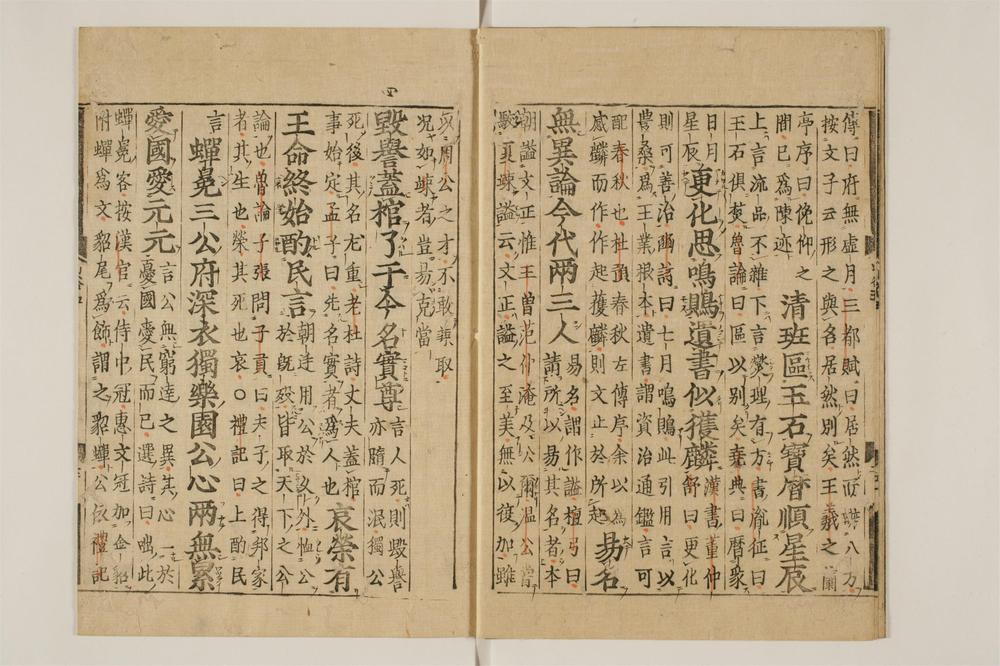 傳曰府無虛月三都賦曰居然而辨八方
按文子云形之與名居然別矣王羲之蘭
亭序曰俛仰之
間已爲陳迹清班區玉石寶曆順星辰
上言流品不雜下言爕理有方書胤征曰
玉石俱焚魯論曰區以别矣堯典曰曆衆
日月
星辰更化思鳴鵙遺書似獲麟漢書董仲
舒曰更化
則可善治豳詩曰七月鳴鵙此引用言以
農桑爲王業根本遺書謂資治通鑑言可
配春秋也杜預春秋左傳序余以爲
感麟而作作起獲麟則文止於所起易名
無異論今代兩三人易名謂作謚檀弓曰
請所以易其名者本
朝謚文正惟王曾范仲淹及公爾温公嘗
駁夏竦謚云文正謚之至美無以復加雖
以周公之才不敢兼取
况如竦者豈易克當
毀譽蓋棺了于今名實尊言人死則毀譽
亦隨而泯獨公
死後其名尤重老杜詩丈夫蓋棺
事始定孟子曰先名實者爲人也哀榮有
王命終始酌民言朝廷用公於久外恤公
於旣歿皆取天下之公
論也魯論子張問子貢曰夫子之得邦家
者其生也榮其死也哀○禮記曰上酌民
言蟬冕三公府深衣獨樂園公心兩無累
愛國愛元元言公無窮達之異其心一於
憂國愛民而已選詩曰咄此
蟬冕客按漢官云侍中冠惠文冠加金貂
附蟬爲文貂尾爲飾謂之貂蟬公依禮記